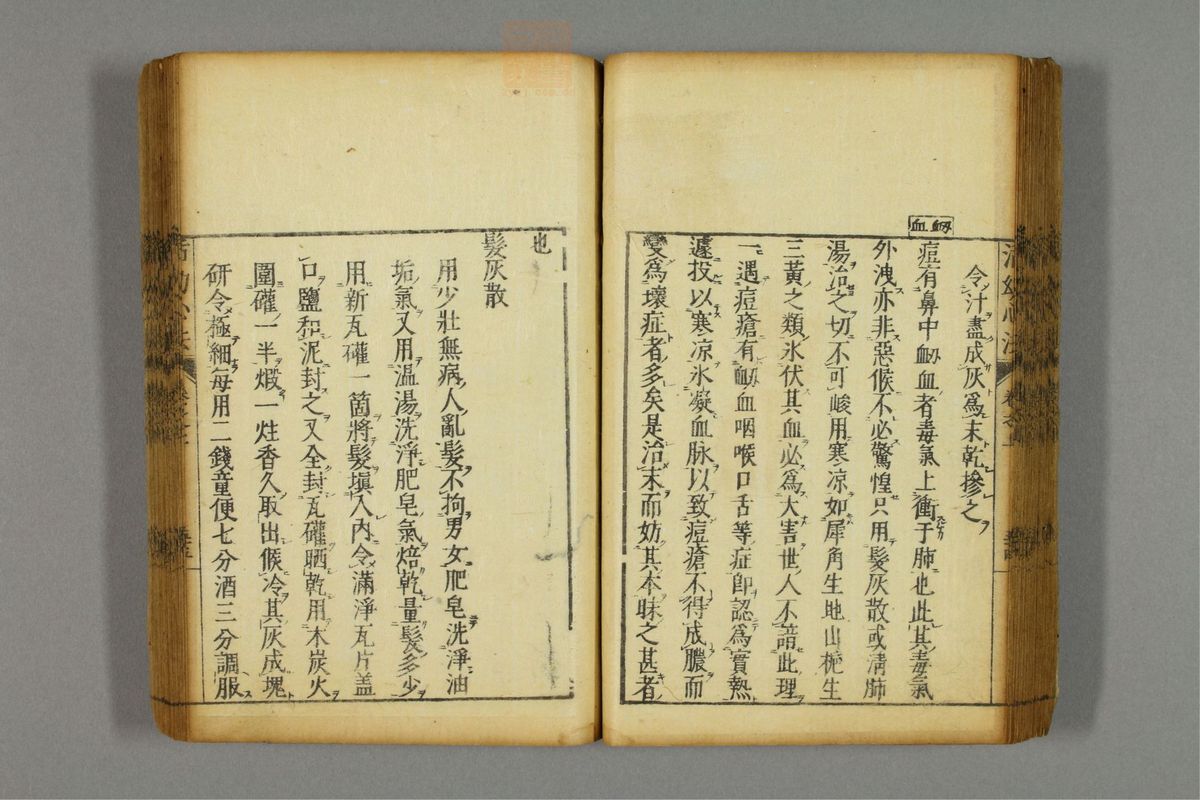 衂血
令汁盡成灰爲末乾摻之
痘有鼻中衂血者毒氣上衝于肺也此其毒氣
外洩亦非惡候不必驚惶只用髮灰散或清肺
湯治之切不可峻用寒凉如犀角生地山梔生
三黃之類氷伏其血必爲大害世人不諳此理
一遇痘瘡有衂血咽喉口舌等症卽認爲實熱
遽投以寒凉氷凝血脉以致痘瘡不得成膿而
變爲壞症者多矣是治末而妨其本昧之甚者
也
髮灰散
用少壯無病人亂髮不拘男女肥皂洗淨油
垢氣又用溫湯洗淨肥皂氣焙乾量髮多少
用新瓦礶一箇將髮塡入內令滿淨瓦片盖
口鹽和泥封之又全封瓦礶晒乾用木炭火
圍礶一半煅一炷香久取出候冷其灰成塊
研令極細每用二錢童便七分酒三分調服